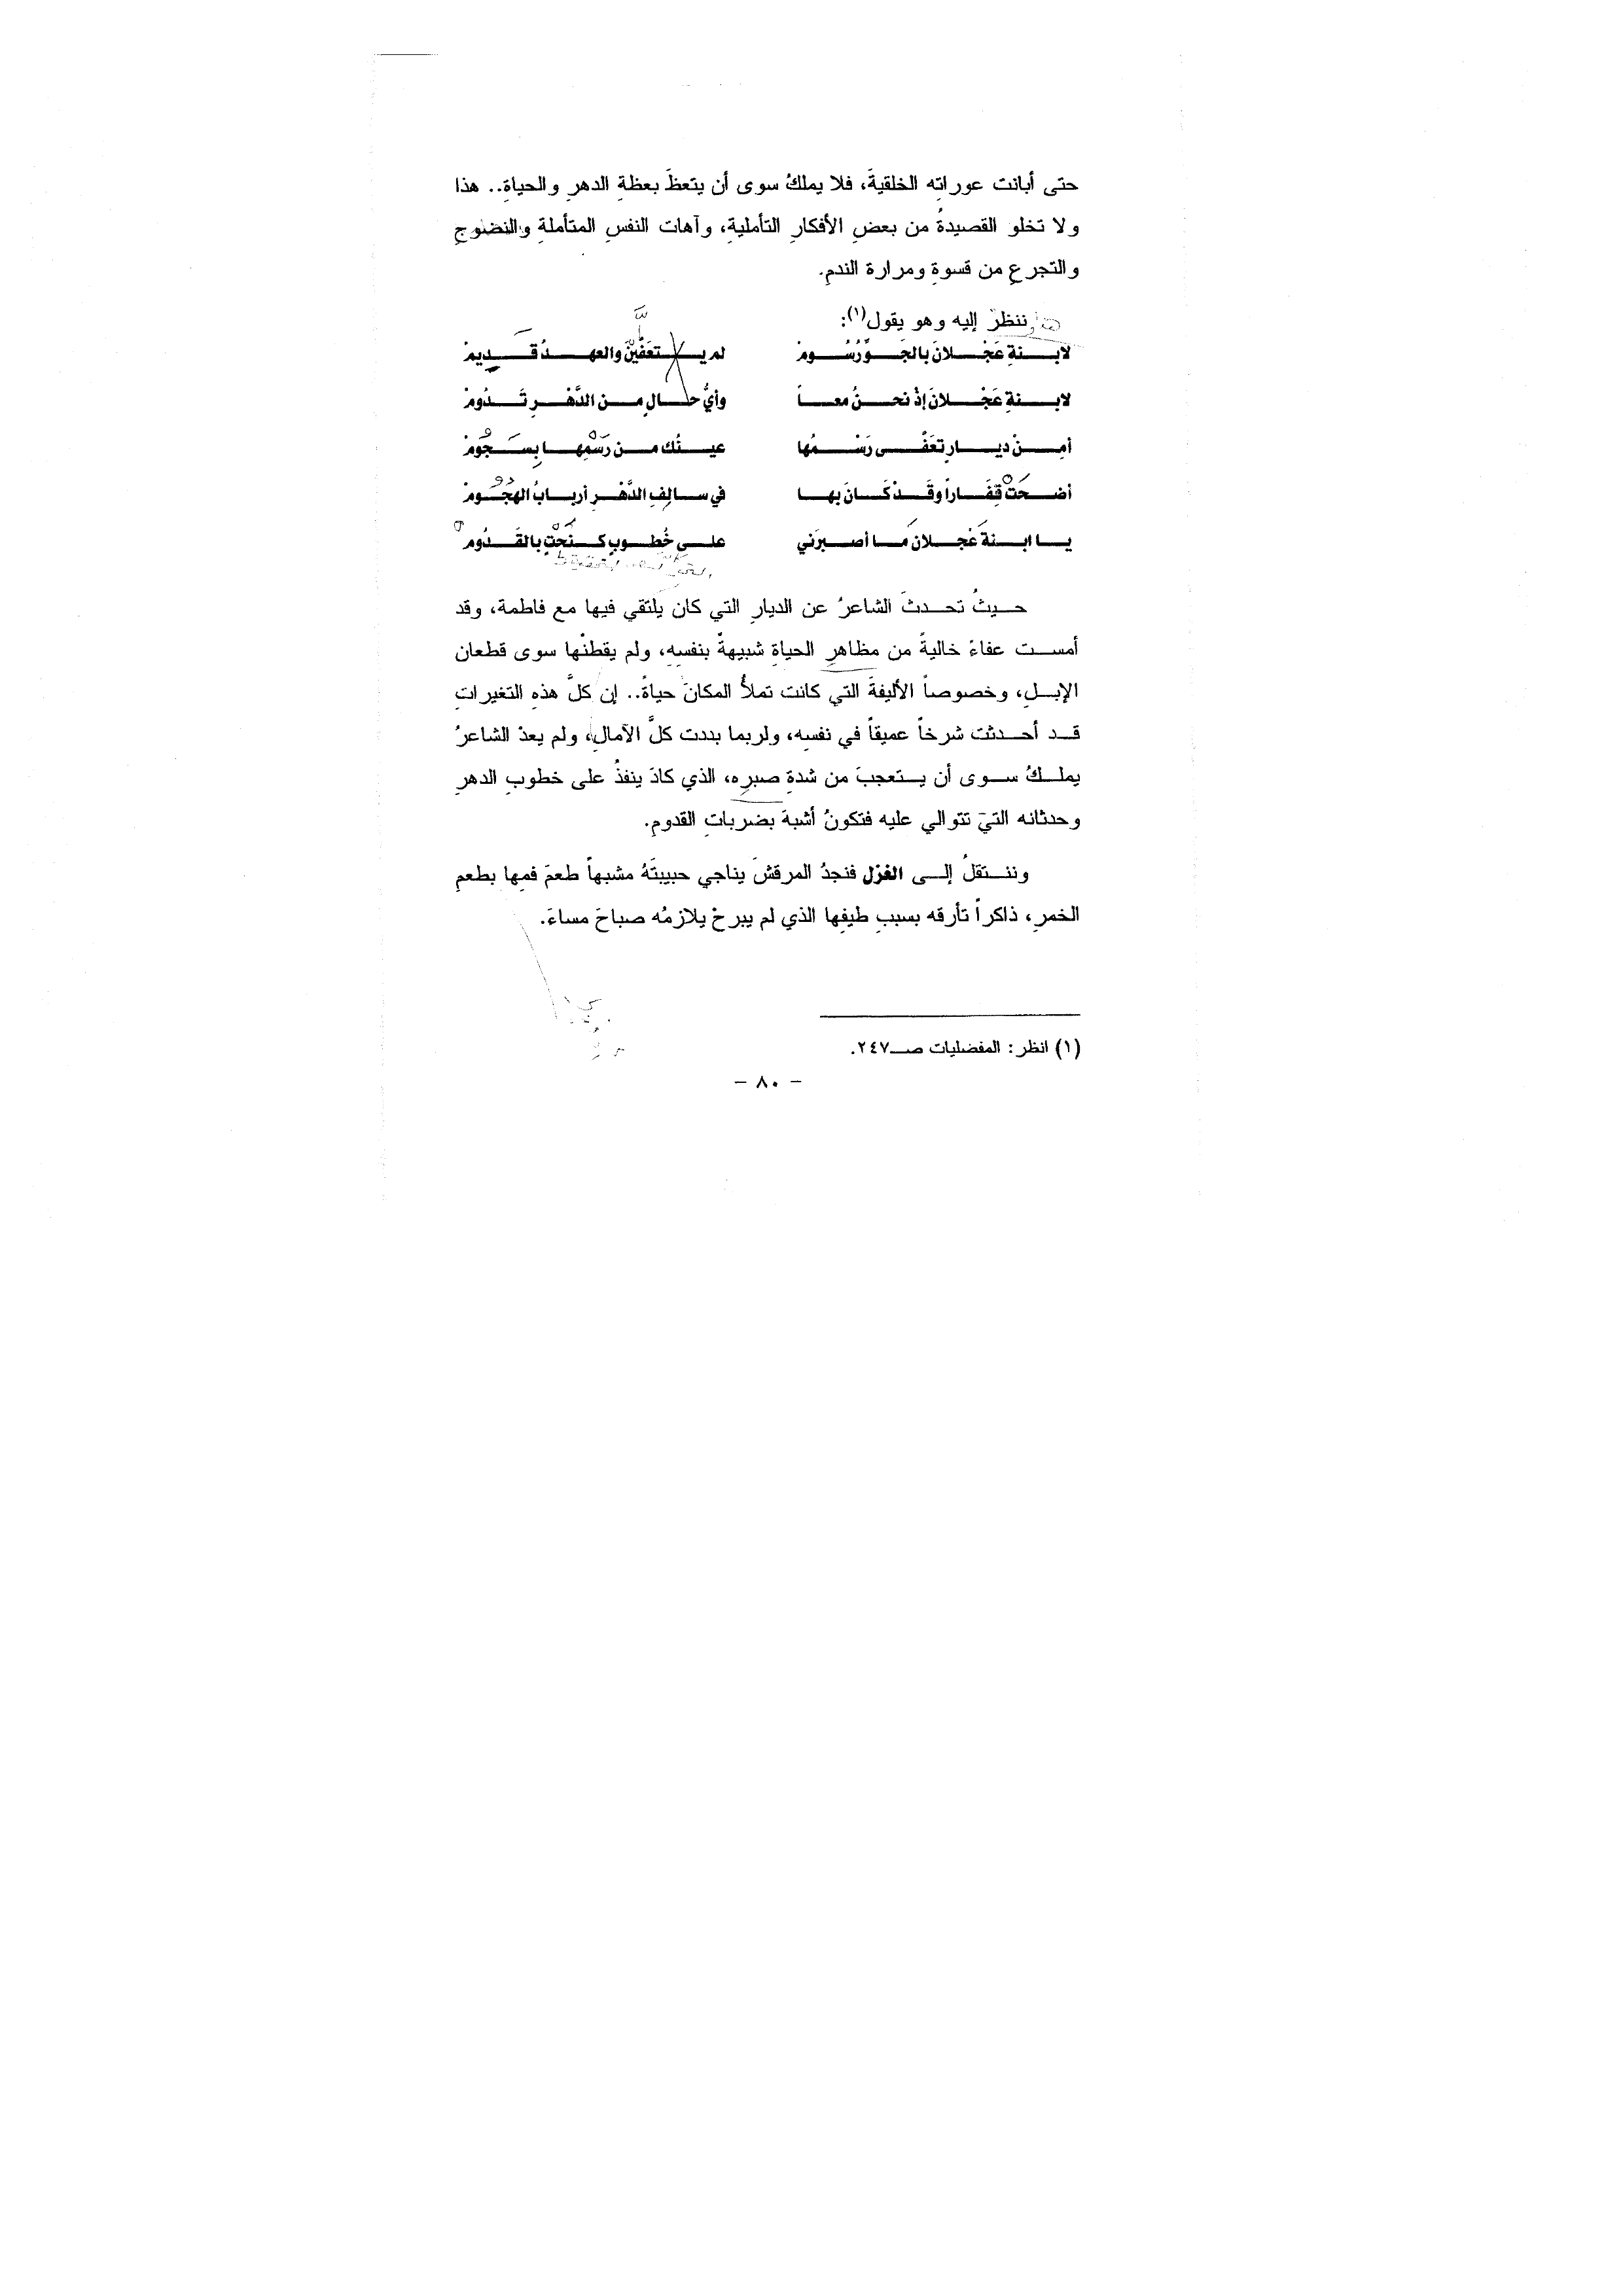 حتى أبانت عوراتِه الخلقيةَ، فلا يملكُ سوى أن يتعظَ بعظةِ الدهرِ والحياةِ.. هذا
ولا تخلو القصيدةُ من بعضِ الأفكارِ التأمليةِ، وآهات النفسِ المتأملةِ والنضوجِ
والتجرعِ من قسوةِ ومرارة الندمِ.
ننظرْ إليه وهو يقول(١):
لابنةِ عَجْلانَ بالجَوِّ رُسُومْ لم يتعفَّيْنَ والعهدُ قَدِيمْ
لابنةِ عَجْلانَ إذْ نحنُ معاً وأيُّ حالٍ من الدَّهْرِ تَدُومْ
أمِنْ ديارٍ تعَفَّى رَسْمُها عينُك من رَسْمِها بِسَجُومْ
أضحَتْ قِفَاراً وقَدْ كَانَ بها في سالِفِ الدَّهْرِ أربابُ الهَجُومْ
يا ابنةَ عَجْلانَ مَا أصبرَني على خُطوبٍ كنَحْتٍ بالقَدُومْ
حيثُ تحدثَ الشاعرُ عن الديارِ التي كان يَلتقي فيها مع فاطمة، وقد
أمست عفاءً خاليةً من مظاهرِ الحياةِ شبيهةً بنفسِهِ، ولم يقطنْها سوى قطعان
الإبلِ، وخصوصاً الأليفةَ التي كانت تملأُ المكانَ حياةً.. إن كلَّ هذهِ التغيراتِ
قد أحدثت شرخاً عميقاً في نفسِه، ولربما بددت كلَّ الآمالِ، ولم يعدْ الشاعرُ
يملكُ سوى أن يستعجبَ من شدةِ صبرِه، الذي كادَ ينفذُ على خطوبِ الدهرِ
وحدثانه التي تتوالي عليه فتكونُ أشبهَ بضرباتِ القدومِ.
وننتقلُ إلى الغزل فنجدُ المرقشَ يناجي حبيبتَهُ مشبهاً طعمَ فمِها بطعمِ
الخمرِ، ذاكراً تأرقه بسببِ طيفِها الذي لم يبرحْ يلازمُه صباحَ مساءَ.
(١) انظر: المفضليات صـ٢٤٧.
- ٨٠ -